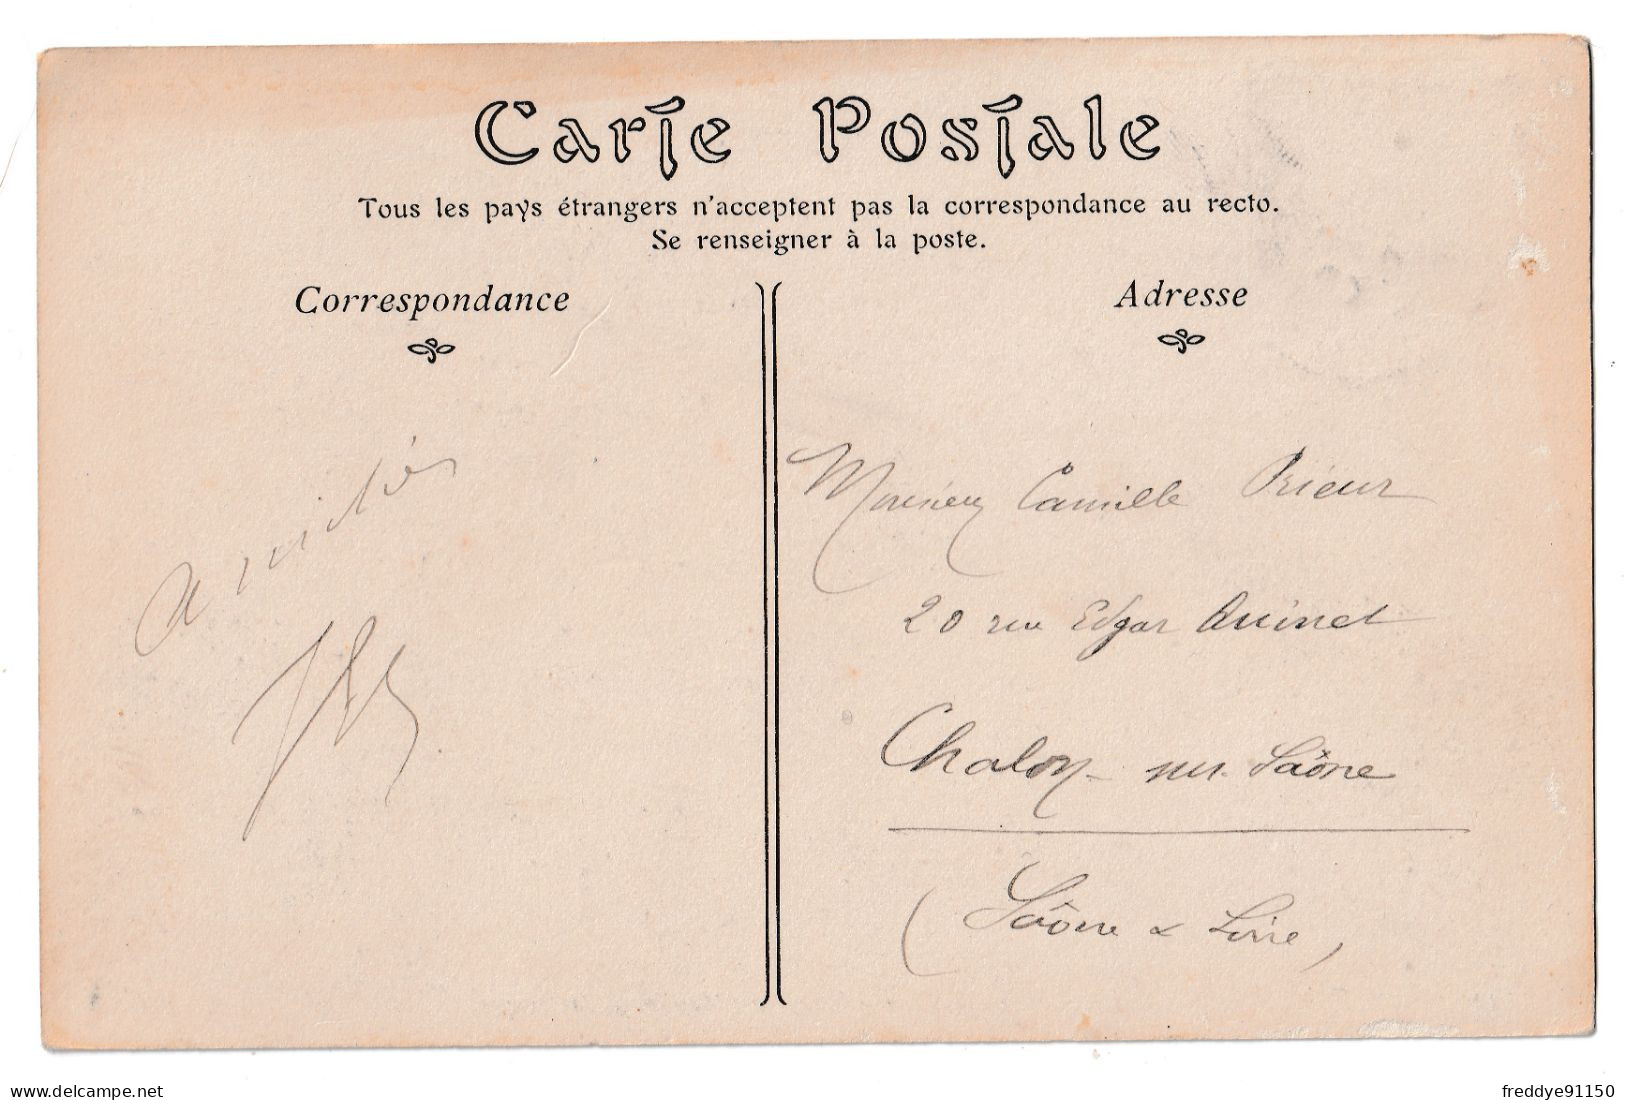 Carte Postale
Tous les pays étrangers n'acceptent pas la correspondance au recto.
Se renseigner à la poste.
Correspondance
Adresse
amitiés
Monsieur Camille Prieur
20 rue Edgar Quinet
Chalon-sur-Saône
(Saône & Loire)
delcampe.net
freddye91150